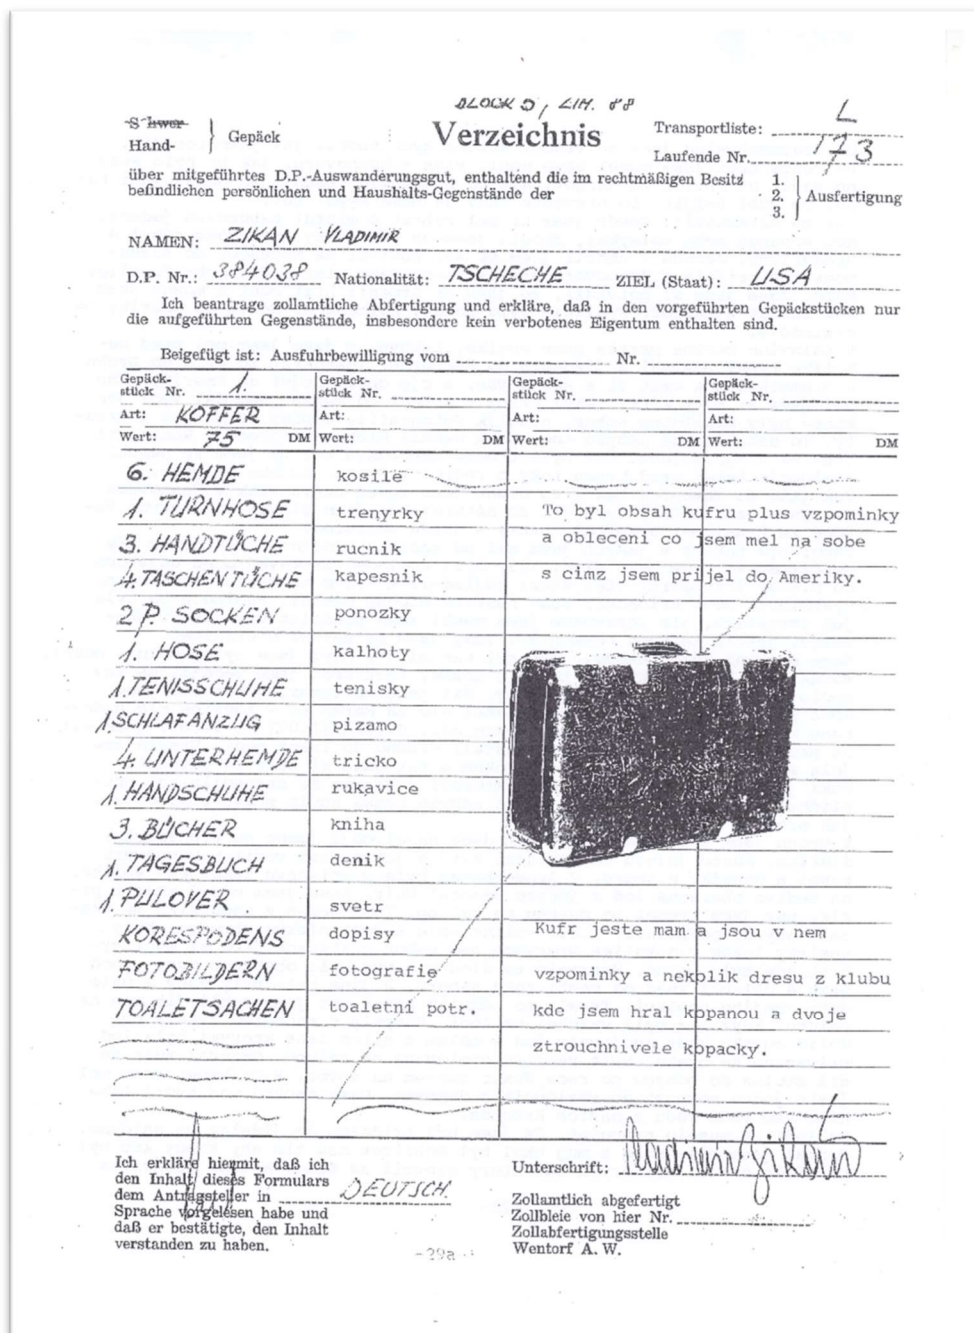 BLOCK D, ZIM. 88
Schwer-
Hand- Gepäck
Verzeichnis
Transportliste: L
Laufende Nr. 173
über mitgeführtes D.P.-Auswanderungsgut, enthaltend die im rechtmäßigen Besitz
befindlichen persönlichen und Haushalts-Gegenstände der
1.
2. Ausfertigung
3.
NAMEN: ZIKAN VLADIMIR
D.P. Nr.: 384038 Nationalität: TSCHECHE ZIEL (Staat): USA
Ich beantrage zollamtliche Abfertigung und erkläre, daß in den vorgeführten Gepäckstücken nur
die aufgeführten Gegenstände, insbesondere kein verbotenes Eigentum enthalten sind.
Beigefügt ist: Ausfuhrbewilligung vom Nr.
Gepäck- Gepäck- Gepäck- Gepäck-
stück Nr. 1. stück Nr. stück Nr. stück Nr.
Art: KOFFER Art: Art: Art:
Wert: 75 DM Wert: DM Wert: DM Wert: DM
6. HEMDE kosile
1. TURNHOSE trenyrky To byl obsah kufru plus vzpominky
3. HANDTÜCHE rucnik a obleceni co jsem mel na sobe
4. TASCHENTÜCHE kapesnik s cimz jsem prijel do Ameriky.
2 P. SOCKEN ponozky
1. HOSE kalhoty
1. TENISSCHUHE tenisky
1 SCHLAFANZUG pizamo
4. UNTERHEMDE tricko
1. HANDSCHUHE rukavice
3. BÜCHER kniha
1. TAGESBUCH denik
1. PULOVER svetr
KORESPODENS dopisy Kufr jeste mam a jsou v nem
FOTOBILDERN fotografie vzpominky a nekolik dresu z klubu
TOALETSACHEN toaletni potr. kde jsem hral kopanou a dvoje
ztrouchnivele kopacky.
Ich erkläre hiermit, daß ich
den Inhalt dieses Formulars
dem Antragsteller in DEUTSCH.
Sprache vorgelesen habe und
daß er bestätigte, den Inhalt
verstanden zu haben.
Unterschrift: Vladimir Zikan
Zollamtlich abgefertigt
Zollbleie von hier Nr.
Zollabfertigungsstelle
Wentorf A. W.
-29a-